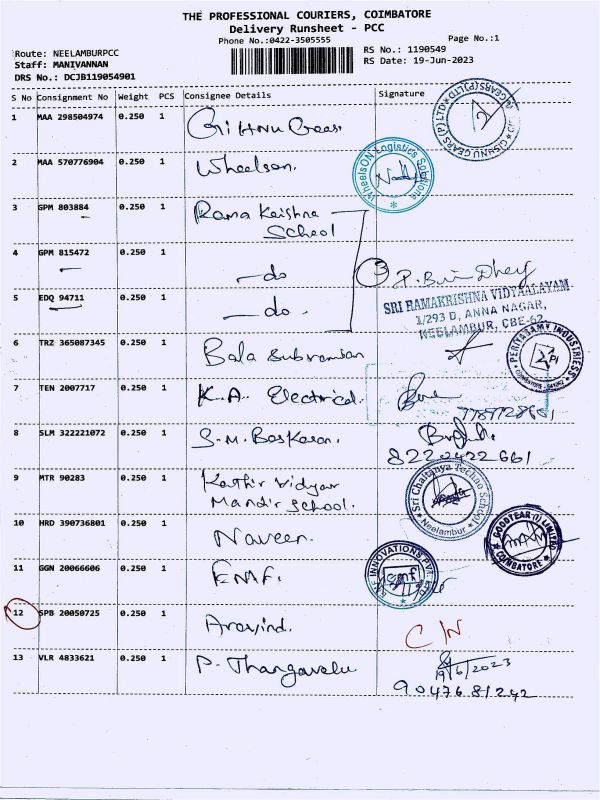 THE PROFESSIONAL COURIERS, COIMBATORE
Delivery Runsheet - PCC
Phone No.:0422-3505555 Page No.:1
Route: NEELAMBURPCC RS No.: 1190549
Staff: MANIVANNAN RS Date: 19-Jun-2023
DRS No.: DCJB119054901
S No Consignment No Weight PCS Consignee Details Signature
1 MAA 298504974 0.250 1
GISHNU GEARS (P) LTD
2 MAA 570776904 0.250 1 Wheelson.
WheelsON Logistics Solutions
3 GPM 803884 0.250 1 Rama Krishna
School
4 GPM 815472 0.250 1 -do 3
5 EDQ 94711 0.250 1 -do.
SRI RAMAKRISHNA VIDYAALAYAM
1/293 D, ANNA NAGAR,
NEELAMBUR, CBE-62
6 TRZ 365087345 0.250 1 Bala Subramian
PERIYASAMY INDUSTRIESE
COIMBATORE - 641062
7 TEN 2007717 0.250 1 K.A. Electrical.
8 SLM 322221072 0.250 1 S.M. Baskaran.
8220422661
9 MTR 90283 0.250 1 Kathir Vidyaa
Mandir School.
Sri Chaitanya Techno School
Neelambur
10 HRD 390736801 0.250 1 Naveen.
GOODYEAR (I) LIMITED
COIMBATORE
11 GGN 20066606 0.250 1 EMF.
EMF INNOVATIONS PVT. LTD
emf
12 SPB 20050725 0.250 1 Aravind. C/N
13 VLR 4833621 0.250 1 P. Thangavelu
19/6/2023
9047681242